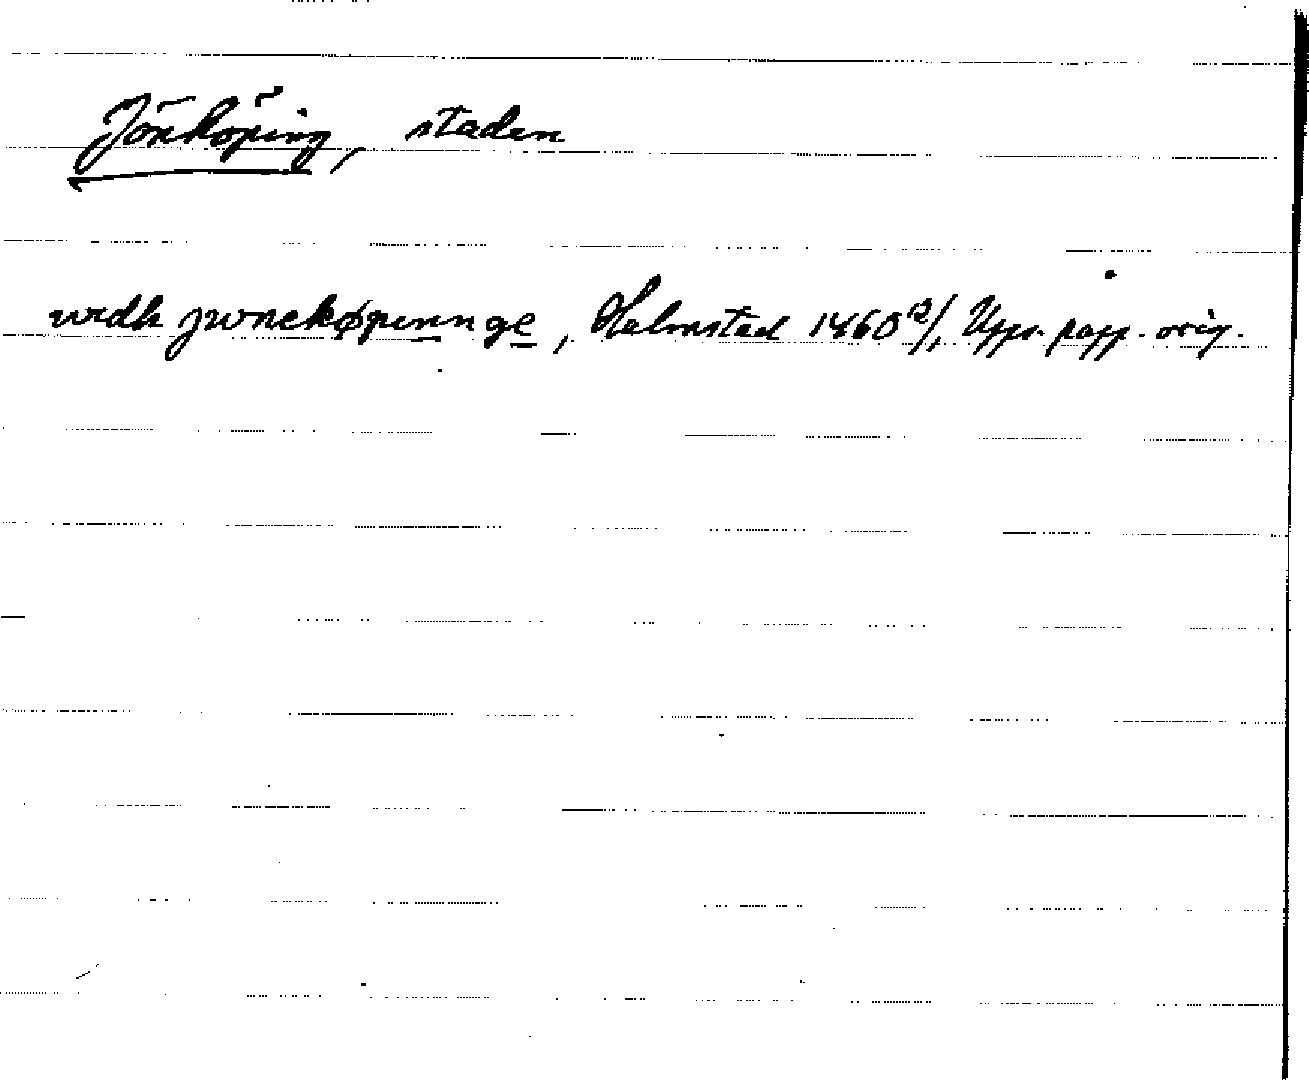 Jönköping, staden
widh jwnekøpinnge, Halmstad 1460 Upps. papp. orig.